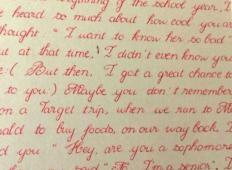 ginning of the school year, I
heard so much about how cool you are
thought " I want to know her so bad "
ut at that time, I didn't even know you
:( But then, I got a great chance to
to you:) Maybe you don't remember
on a Target trip, when we run to M
nald to buy foods, on our way back, I
d you " Hey, are you a sophomore
said " I'm a senior"